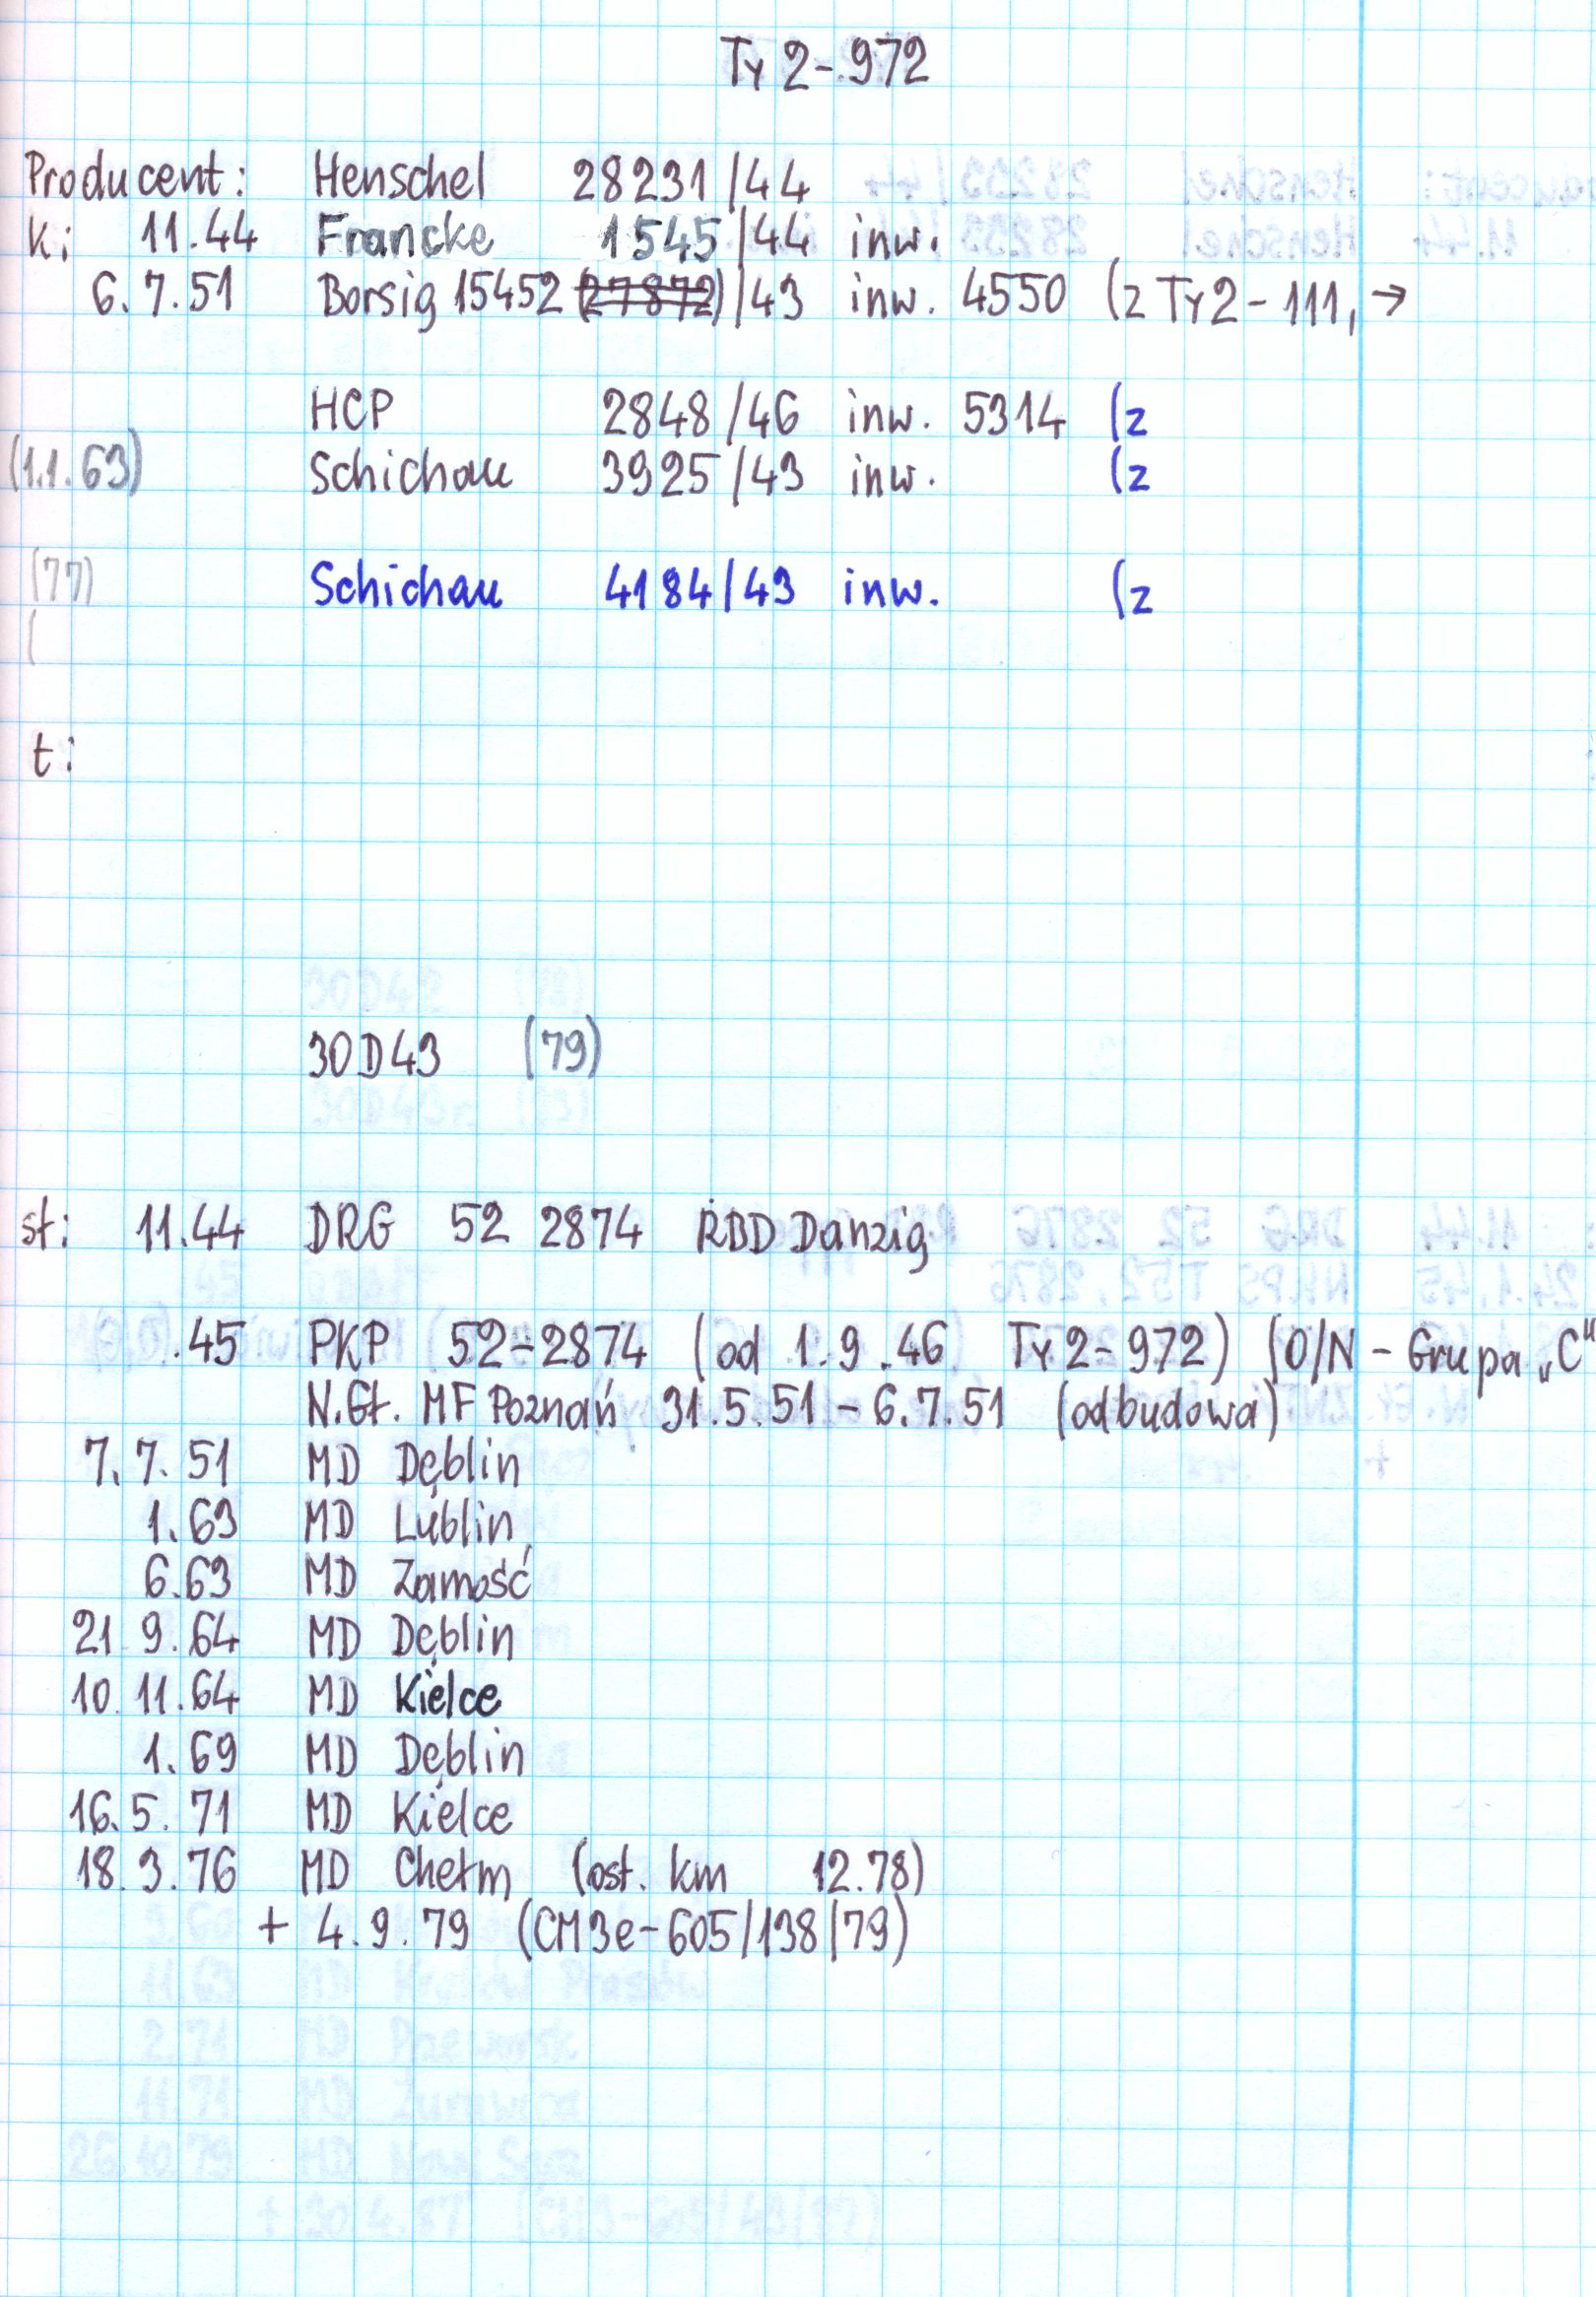 Ty 2-972
Producent: Henschel 28231/44
K: 11.44 Francke 1545/44 inw.
6.7.51 Borsig 15452 (27872)/43 inw. 4550 (z Ty2-111, →
HCP 2848/46 inw. 5314 (z
(1.1.63) Schichau 3925/43 inw. (z
(77) Schichau 4184/43 inw. (z
(
t:
30D43 (79)
st: 11.44 DRG 52 2874 RBD Danzig
.45 PKP 52-2874 (od 1.9.46 Ty2-972) (O/N - Grupa „C"
N.Gł. MF Poznań 31.5.51 - 6.7.51 (odbudowa)
7.7.51 MD Dęblin
1.63 MD Lublin
6.63 MD Zamość
21 9.64 MD Dęblin
10.11.64 MD Kielce
1.69 MD Dęblin
16.5.71 MD Kielce
18.3.76 MD Chełm (ost. km 12.78)
+ 4.9.79 (CM3e-605/138/79)